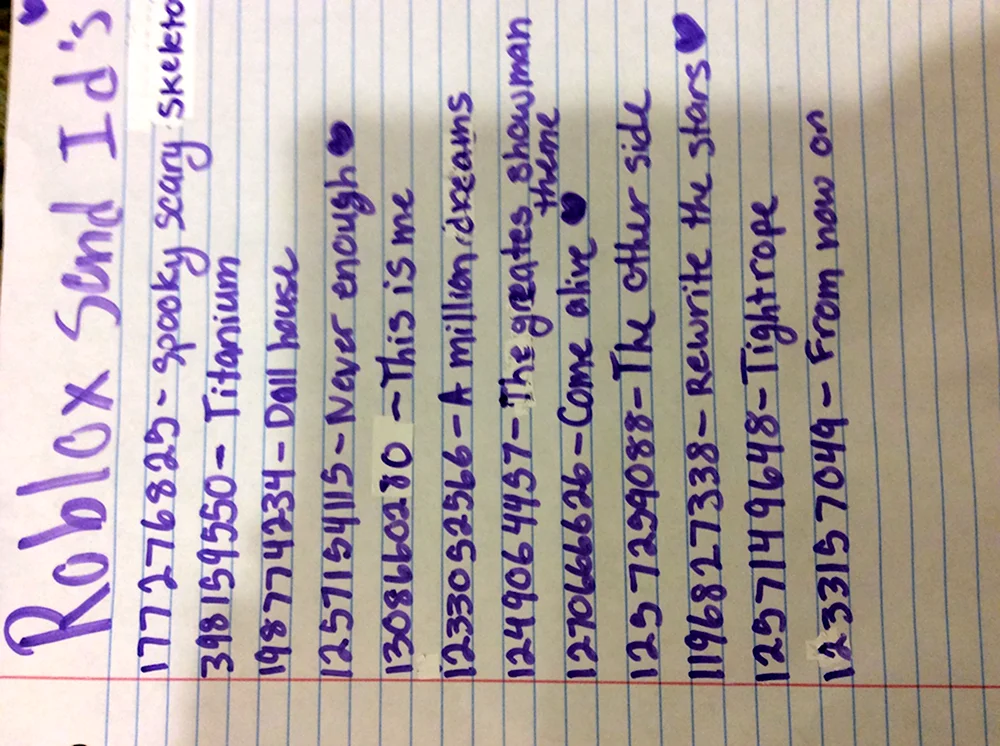 Roblox Sond Id's
177276825 - spooky scary skeleto
398159550 - Titanium
1987774234 - Doll house
1257154115 - Never enough
1308660280 - This is me
1233052566 - A million dreams
1249064457 - The greates showman
theme
1270666626 - Come alive
1257259088 - The other side
1196827338 - Rewrite the stars
1257149648 - Tightrope
1233157049 - From now on